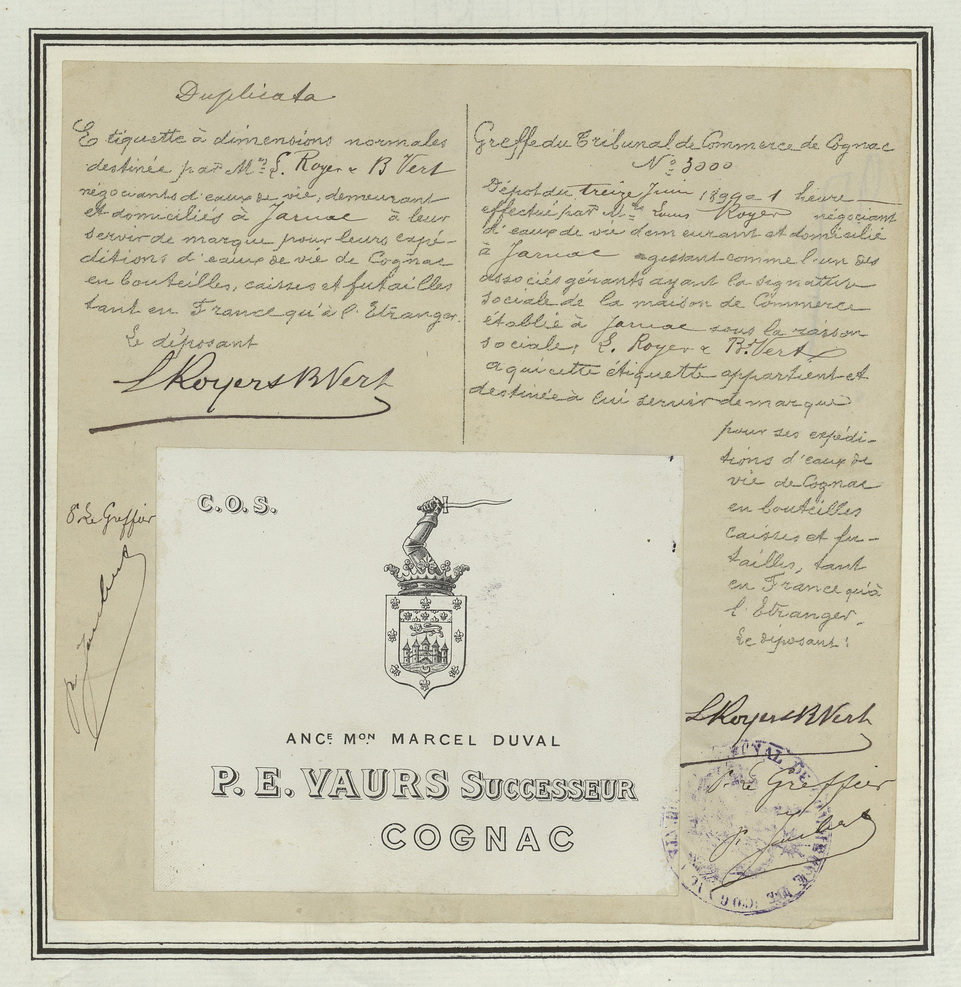 Duplicata
Etiquette à dimensions normales
destinée par Mrs L. Royer & B Vert
négociants d'eaux de vie, demeurant
et domiciliés à Jarnac à leur
servir de marque pour leurs expé-
ditions d'eaux de vie de Cognac
en bouteilles, caisses et futailles
tant en France qu'à l'Etranger.
Le déposant
L Royer & B Vert
Greffe du Tribunal de Commerce de Cognac
No 3000
Dépôt du treize Juin 1899 à 1 heure
effectué par Mr Louis Royer négociant
d'eaux de vie demeurant et domicilié
à Jarnac agissant comme l'un des
associés gérants ayant la signature
sociale de la maison de Commerce
établie à Jarnac sous la raison
sociale; L. Royer & B. Vert
a qui cette étiquette appartient et
destinée à lui servir de marque
pour ses expédi-
tions d'eaux de
vie de Cognac
en bouteilles
caisses et fu-
tailles, tant
en France qu'à
l'Etranger.
Le deposant:
L Royer & B Vert
Greffier
Le Greffier
C.O.S.
ANCE. MON MARCEL DUVAL
P. E. VAURS SUCCESSEUR
COGNAC
TRIBUNAL DE COMMERCE DE COGNAC